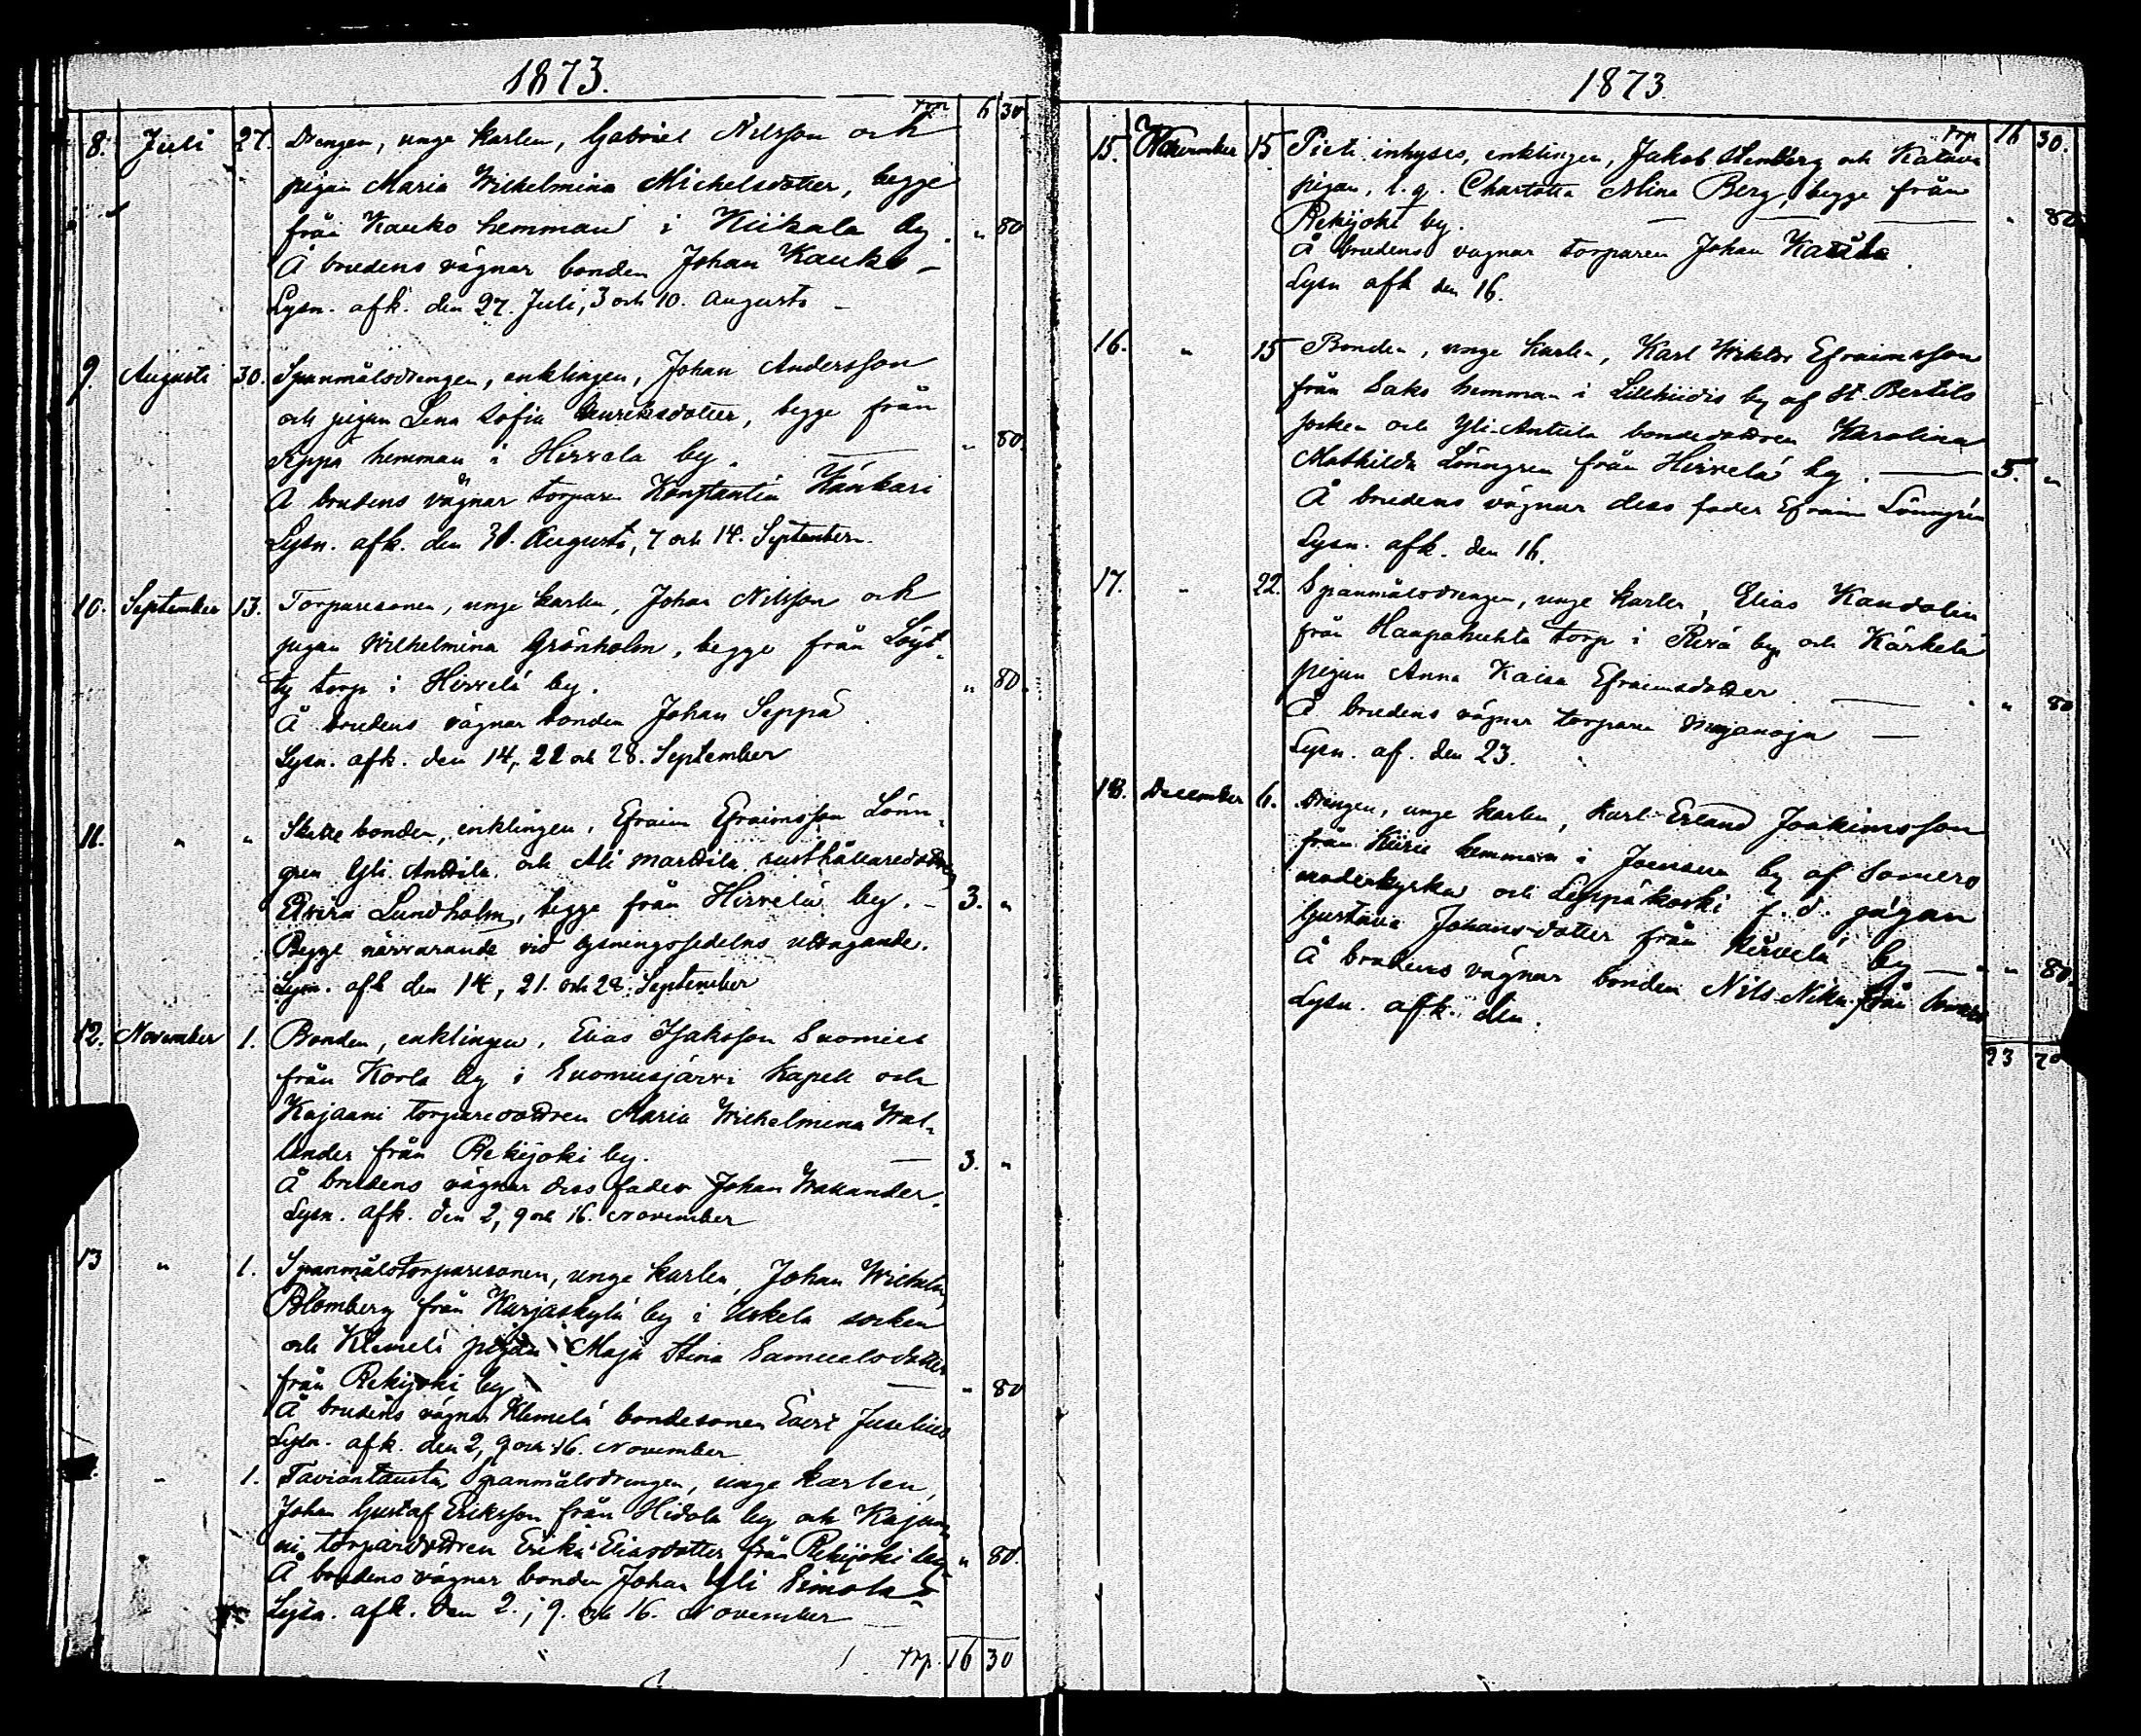 1873.
Trp 6 30
8. Juli 27. Drengen, unge karlen, Gabriel Nilsson och
pigan Maria Wilhelmina Michelsdotter, begge
från Kauko hemman i Kiikala by. " 80
Å brudens vägnar bonden Johan Kauko –
Lysn. afk. den 27. Juli, 3 och 10. Augusti –
9. Augusti 30. Spanmålsdrengen, enklingen, Johan Andersson
och pigan Lena Sofia Henriksdotter, begge från
Seppä hemman i Hirvelä by. — " 80.
Å brudens vägnar torparen Konstantin Kankari
Lysn. afk. den 31. Augusti, 7 och 14. September.
10. September 13. Torparesonen, unge karlen, Johan Nilsson och
pigan Wilhelmina Grönholm, begge från Löyt-
ty torp i Hirvelä by. " 80.
Å brudens vägnar bonden Johan Seppä
Lysn. afk. den 14, 21 och 28. September
11. " " Skatte bonden, enklingen, Efraim Efraimsson Lönn-
gren Yli Anttila och Ali Marttila rusthållaredottren
Elvira Lundholm, begge från Hirvelä by. – 3. "
Begge närvarande vid lysningssedelns uttagande.
Lysn. afk den 14, 21. och 28. September
12. November 1. Bonden, enklingen, Elias Isaksson Suomies
från Korla by i Suomusjärvi Kapell och
Kajaani torparedottren Maria Wilhelmina Wal-
lander från Rekijoki by. — 3. "
Å brudens vägnar dess fader Johan Wallander.
Lysn. afk. den 2, 9 och 16. November
13 " 1. Spanmålstorparesonen, unge karlen, Johan Wilhelm
Blomberg från Kurjaskylä by i Uskela socken
och Klemelä pigan Maja Stina Samuelsdotter
från Rekijoki by — " 80
Å brudens vägnar Klemelä bondesonen Evert Juselius
Lysn. afk. den 2, 9 och 16. November
" 1. Taviantausta Spanmålsdrengen, unge karlen,
Johan Gustaf Eriksson från Hidola by och Kajaa-
ni torparedottren Erika Eliasdotter från Rekijoki by " 80.
Å brudens vägnar bonden Johan Yli Simola –
Lysn. afk. den 2., 9. och 16. November
Trp. 16 30
1873.
Trp 16 30.
15. November 15 Pieti inhyses, enklingen, Jakob Stenberg och Katava
pigan, l. q. Charlotta Mina Berg, begge från
Rekijoki by. — " 80
Å brudens vägnar torparen Johan Katava
Lysn afk den 16.
16. " 15 Bonden, unge karlen, Karl Wiktor Efraimsson
från Saks hemman i Lillhiidis by af St. Bertils
socken och Yli-Anttila bondedottren Karolina
Mathilda Lönngren från Hirvelä by. — 5. "
Å brudens vägnar dess fader Efraim Lönngrén
Lysn. afk. den 16.
17. " 22. Spanmålsdrengen, unge karlen, Elias Kandolin
från Haapahuhta torp i Pirä by och Kärkelä
pigan Anna Kaisa Efraimsdotter — " 80
Å brudens vägnar torparen Myanoja —
Lysn. af. den 23.
18. December 6. Drengen, unge karlen, Karl Erland Joakimsson
från Kiirie hemman i Joensuu by af Somero
moderkyrka och Leppäkoski f. d. pigan
Gustava Johansdotter från Hirvelä by — " 80.
Å brudens vägnar bonden Nils Niku från
Lysn. afk. den.
23 70